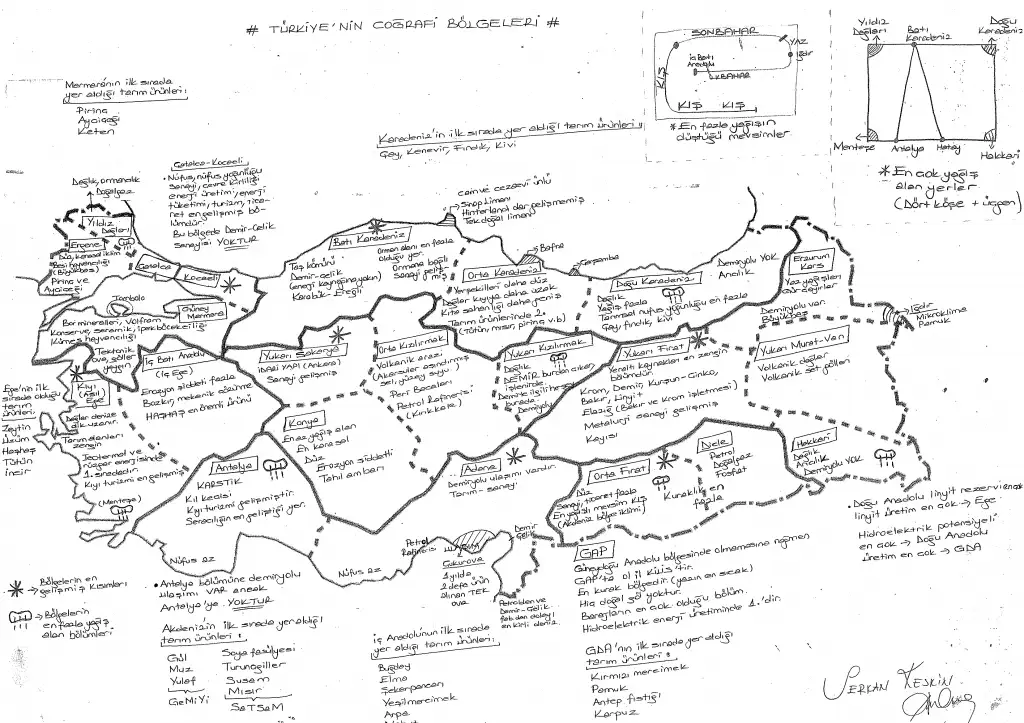 # TÜRKİYE'NİN COĞRAFİ BÖLGELERİ #
Marmara'nın ilk sırada
yer aldığı tarım ürünleri:
Pirinç
Ayçiçeği
Keten
Karadeniz'in ilk sırada yer aldığı tarım ürünleri;
Çay, Kenevir, Fındık, Kivi
SONBAHAR
YAZ
Iğdır
İç Batı
Anadolu
İLKBAHAR
KIŞ
KIŞ KIŞ
* En fazla yağışın
düştüğü mevsimler
Yıldız
Dağları
Batı
Karadeniz
Doğu
Karadeniz
Menteşe
Antalya
Hatay
Hakkari
* En çok yağış
alan yerler
(Dört köşe + üçgen)
Çatalca-Kocaeli
• Nüfus, nüfus yoğunluğu
sanayi, çevre kirliliği
enerji üretimi, enerji
tüketimi, turizm, tica-
ret en gelişmiş bö-
lümdür.
Bu bölgede Demir-Çelik
sanayisi YOKTUR
Dağlık, ormanlık
Doğalgaz
Yıldız
Dağları
Ergene
Düz, karasal iklim
Besi hayvancılığı
(Büyükbaş)
Pirinç ve
Ayçiçeği
Çatalca
Kocaeli
Tombolo
Güney
Marmara
Bor mineralleri, Volfram
Konserve, seramik, ipek böcekçiliği
Kümes hayvancılığı
Tektonik
ova, göller
yaygın
Batı Karadeniz
Taş kömürü
Demir-Çelik
(enerji kaynağına yakın)
Karabük-Ereğli
Orman alanı en fazla
olduğu yer.
Ormana bağlı
sanayi geliş-
miş
Cami ve cezaevi ünlü
Sinop Limanı
Hinterlandı dar gelişmemiş
Tek doğal liman
Bafra
Çarşamba
Orta Karadeniz
Yerşekilleri daha düz
Dağlar kıyıya daha uzak
Kıta sahanlığı daha geniş
Tarım ürünlerinde 2.
(Tütün, mısır, pirinç v.b)
Doğu Karadeniz
Dağlık
Yağış fazla
Tarımsal nüfus yoğunluğu en fazla
Çay fındık, kivi
Demiryolu YOK
Arıcılık
Erzurum
Kars
Yaz yağışları
Gür çayırlar
Demiryolu var
Büyükbaş
Iğdır
Mikroklima
Pamuk
Ege'nin ilk
sırada olduğu
tarım
ürünleri.
Zeytin
Üzüm
Haşhaş
Tütün
İncir
Kıyı
(Asıl)
Ege
Dağlar denize
dik uzanır.
Tarım alanları
zengin
Jeotermal ve
rüzgar enerjisinde
1. sıradadır.
Kıyı turizmi en gelişmiş
(Menteşe)
İç Batı Anadolu
(İç Ege)
Erozyon şiddeti fazla
Bozkır, mekanik çözünme
HAŞHAŞ en önemli ürünü
Yukarı Sakarya
İDARİ YAPI (Ankara)
Sanayi gelişmiş
Orta Kızılırmak
Volkanik arazi
(Akarsular aşındırmış
sel, yüzey suyu)
Peri Bacaları
Petrol Rafinerisi
(Kırıkkale)
Yukarı Kızılırmak
Dağlık
DEMİR burdan çıkar,
işlenirde.
Burada.
Demiryolu
Yukarı Fırat
Yeraltı kaynakları en zengin
bölümdür.
Krom, Demir, Kurşun-Çinko,
Bakır, Linyit
Elazığ (Bakır ve Krom işletmesi)
Metalurji sanayi gelişmiş
Kayısı
Yukarı Murat-Van
Volkanik dağlar
Volkanik set gölleri
Konya
En az yağış alan
En karasal
Düz
Erozyon şiddetli
Tahıl ambarı
Antalya
KARSTİK
Kıl keçisi
Kıyı turizmi gelişmiştir.
Seracılığın en geliştiği yer.
Adana
Demiryolu ulaşımı vardır.
Tarım-sanayi
Orta Fırat
Düz
Sanayi, ticaret fazla
En yağışlı mevsim KIŞ
(Akdeniz bölge iklimi)
Dicle
Petrol
Doğalgaz
Fosfat
Kuraklık en
fazla
Hakkari
Dağlık
Arıcılık
Demiryolu YOK
• Doğu Anadolu linyit rezervi en çok
linyit üretim en çok → Ege
Hidroelektrik potansiyeli
en çok → Doğu Anadolu
üretim en çok → GDA
Nüfus az
Nüfus az
Petrol
Rafinerisi
Çukurova
1 yılda
2 defa ürün
alınan TEK
ova
Demir
Çelik
Petrolden ve
Demir-Çelik
fab. dan dolayı
en kirli deniz.
GAP
Güneydoğu Anadolu bölgesinde olmamasına rağmen
GAP'ta ol il KİLİS'tir.
En kurak bölgedir (yazın en sıcak)
Hiç doğal göl yoktur.
Barajların en çok olduğu bölüm.
Hidroelektrik enerji üretiminde 1.'dir.
GDA'nın ilk sırada yer aldığı
tarım ürünleri:
Kırmızı mercimek
Pamuk
Antep fıstığı
Karpuz
→ Bölgelerin en
gelişmiş kısımları
→ Bölgelerin
en fazla yağış
alan bölümleri
• Antalya bölümüne demiryolu
ulaşımı VAR ancak
Antalya'ya YOKTUR
Akdeniz'in ilk sırada yer aldığı
tarım ürünleri:
Gül
Muz
Yulaf
GeMiYi
Soya fasülyesi
Turunçgiller
Susam
Mısır
SaTSaM
İç Anadolu'nun ilk sırada
yer aldığı tarım ürünleri:
Buğday
Elma
Şekerpancarı
Yeşilmercimek
Arpa
SERKAN KESKİN